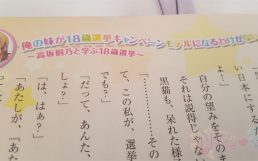 俺の妹が18歳選挙キャンペーンモデルになるわけがない
～高坂桐乃と学ぶ18歳選挙～
い日本にする
自分の望みをそのま
それは説得じゃな
黒猫も、呆れた様
「………その
て、この私が、選
「だって、あんた、
しょ？」
「は、はぁ？」
「あたしが、『